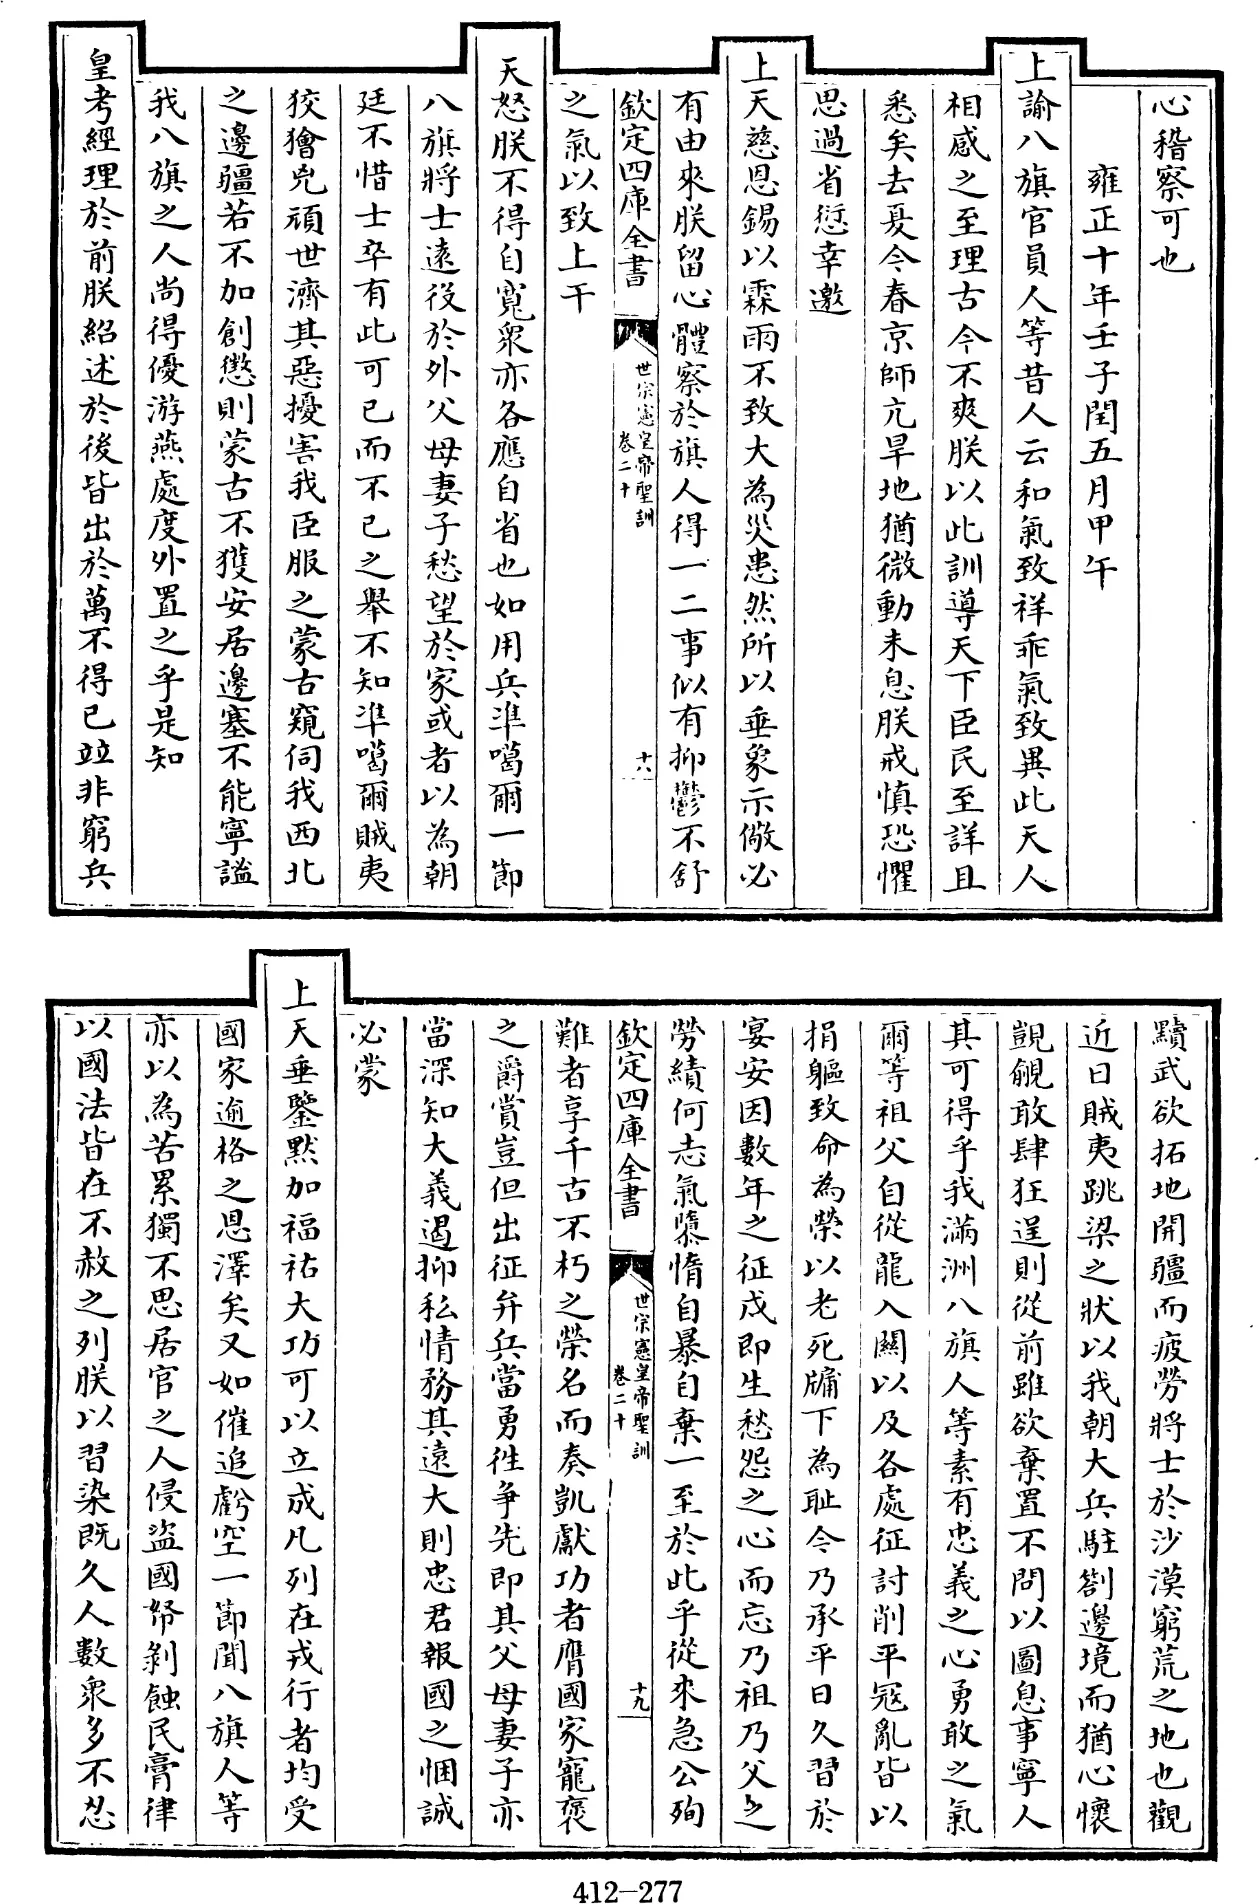 心稽察可也
雍正十年壬子閏五月甲午
上諭八旗官員人等昔人云和氣致祥乖氣致異此天人
相感之至理古今不爽朕以此訓導天下臣民至詳且
悉矣去夏今春京師亢旱地猶微動未息朕戒慎恐懼
思過省愆幸邀
上天慈恩錫以霖雨不致大為災患然所以垂象示儆必
有由來朕留心體察於旗人得一二事似有抑鬱不舒
欽定四庫全書
世宗憲皇帝聖訓
卷二十
十八
之氣以致上干
天怒朕不得自寬衆亦各應自省也如用兵凖噶爾一節
八旗將士遠役於外父母妻子愁望於家或者以為朝
廷不惜士卒有此可已而不已之舉不知凖噶爾賊夷
狡獪兇頑世濟其惡擾害我臣服之蒙古窺伺我西北
之邊疆若不加創懲則蒙古不獲安居邊塞不能寧謐
我八旗之人尚得優游燕處度外置之乎是知
皇考經理於前朕紹述於後皆出於萬不得已竝非窮兵
黷武欲拓地開疆而疲勞將士於沙漠窮荒之地也觀
近日賊夷跳梁之狀以我朝大兵駐劄邊境而猶心懷
覬覦敢肆狂逞則從前雖欲棄置不問以圖息事寧人
其可得乎我滿洲八旗人等素有忠義之心勇敢之氣
爾等祖父自從龍入關以及各處征討削平冦亂皆以
捐軀致命為榮以老死牖下為恥今乃承平日久習於
宴安因數年之征戍即生愁怨之心而忘乃祖乃父之
勞績何志氣隳惰自暴自棄一至於此乎從來急公殉
欽定四庫全書
世宗憲皇帝聖訓
卷二十
十九
難者享千古不朽之榮名而奏凱獻功者膺國家寵褒
之爵賞豈但出征弁兵當勇徃争先即其父母妻子亦
當深知大義遏抑私情務其遠大則忠君報國之悃誠
必蒙
上天垂鑒默加福祐大功可以立成凡列在戎行者均受
國家逾格之恩澤矣又如催追虧空一節聞八旗人等
亦以為苦累獨不思居官之人侵盜國帑剝蝕民膏律
以國法皆在不赦之列朕以習染既久人數衆多不忍
412-277